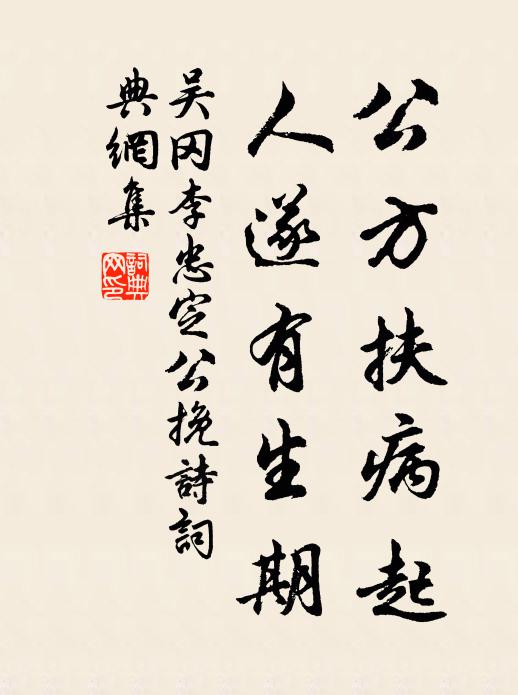 公方扶病起
人遂有生期
吴冈李忠定公挽詩詞
典網集
詞典
网印